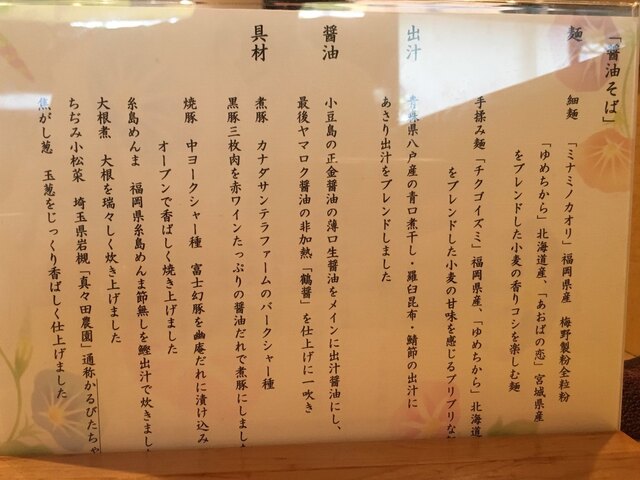 「醤油そば」
麺　細麺　「ミナミノカオリ」福岡県産　梅野製粉全粒粉
「ゆめちから」北海道産、「あおばの恋」宮城県産
をブレンドした小麦の香りコシを楽しむ麺
手揉み麺「チクゴイズミ」福岡県産、「ゆめちから」北海道
をブレンドした小麦の甘味を感じるプリプリな
出汁　青森県八戸産の青口煮干し・羅臼昆布・鯖節の出汁に
あさり出汁をブレンドしました
醤油　小豆島の正金醤油の薄口生醤油をメインに出汁醤油にし、
最後ヤマロク醤油の非加熱「鶴醤」を仕上げに一吹き
具材　煮豚　カナダサンテラファームのバークシャー種
黒豚三枚肉を赤ワインたっぷりの醤油だれで煮豚にしまし
焼豚　中ヨークシャー種　富士幻豚を幽庵だれに漬け込み
オーブンで香ばしく焼き上げました
糸島めんま　福岡県糸島めんま節無しを鰹出汁で炊きまし
大根煮　大根を瑞々しく炊き上げました
ちぢみ小松菜　埼玉県岩槻「真々田農園」通称かるびたちゃ
焦がし葱　玉葱をじっくり香ばしく仕上げました